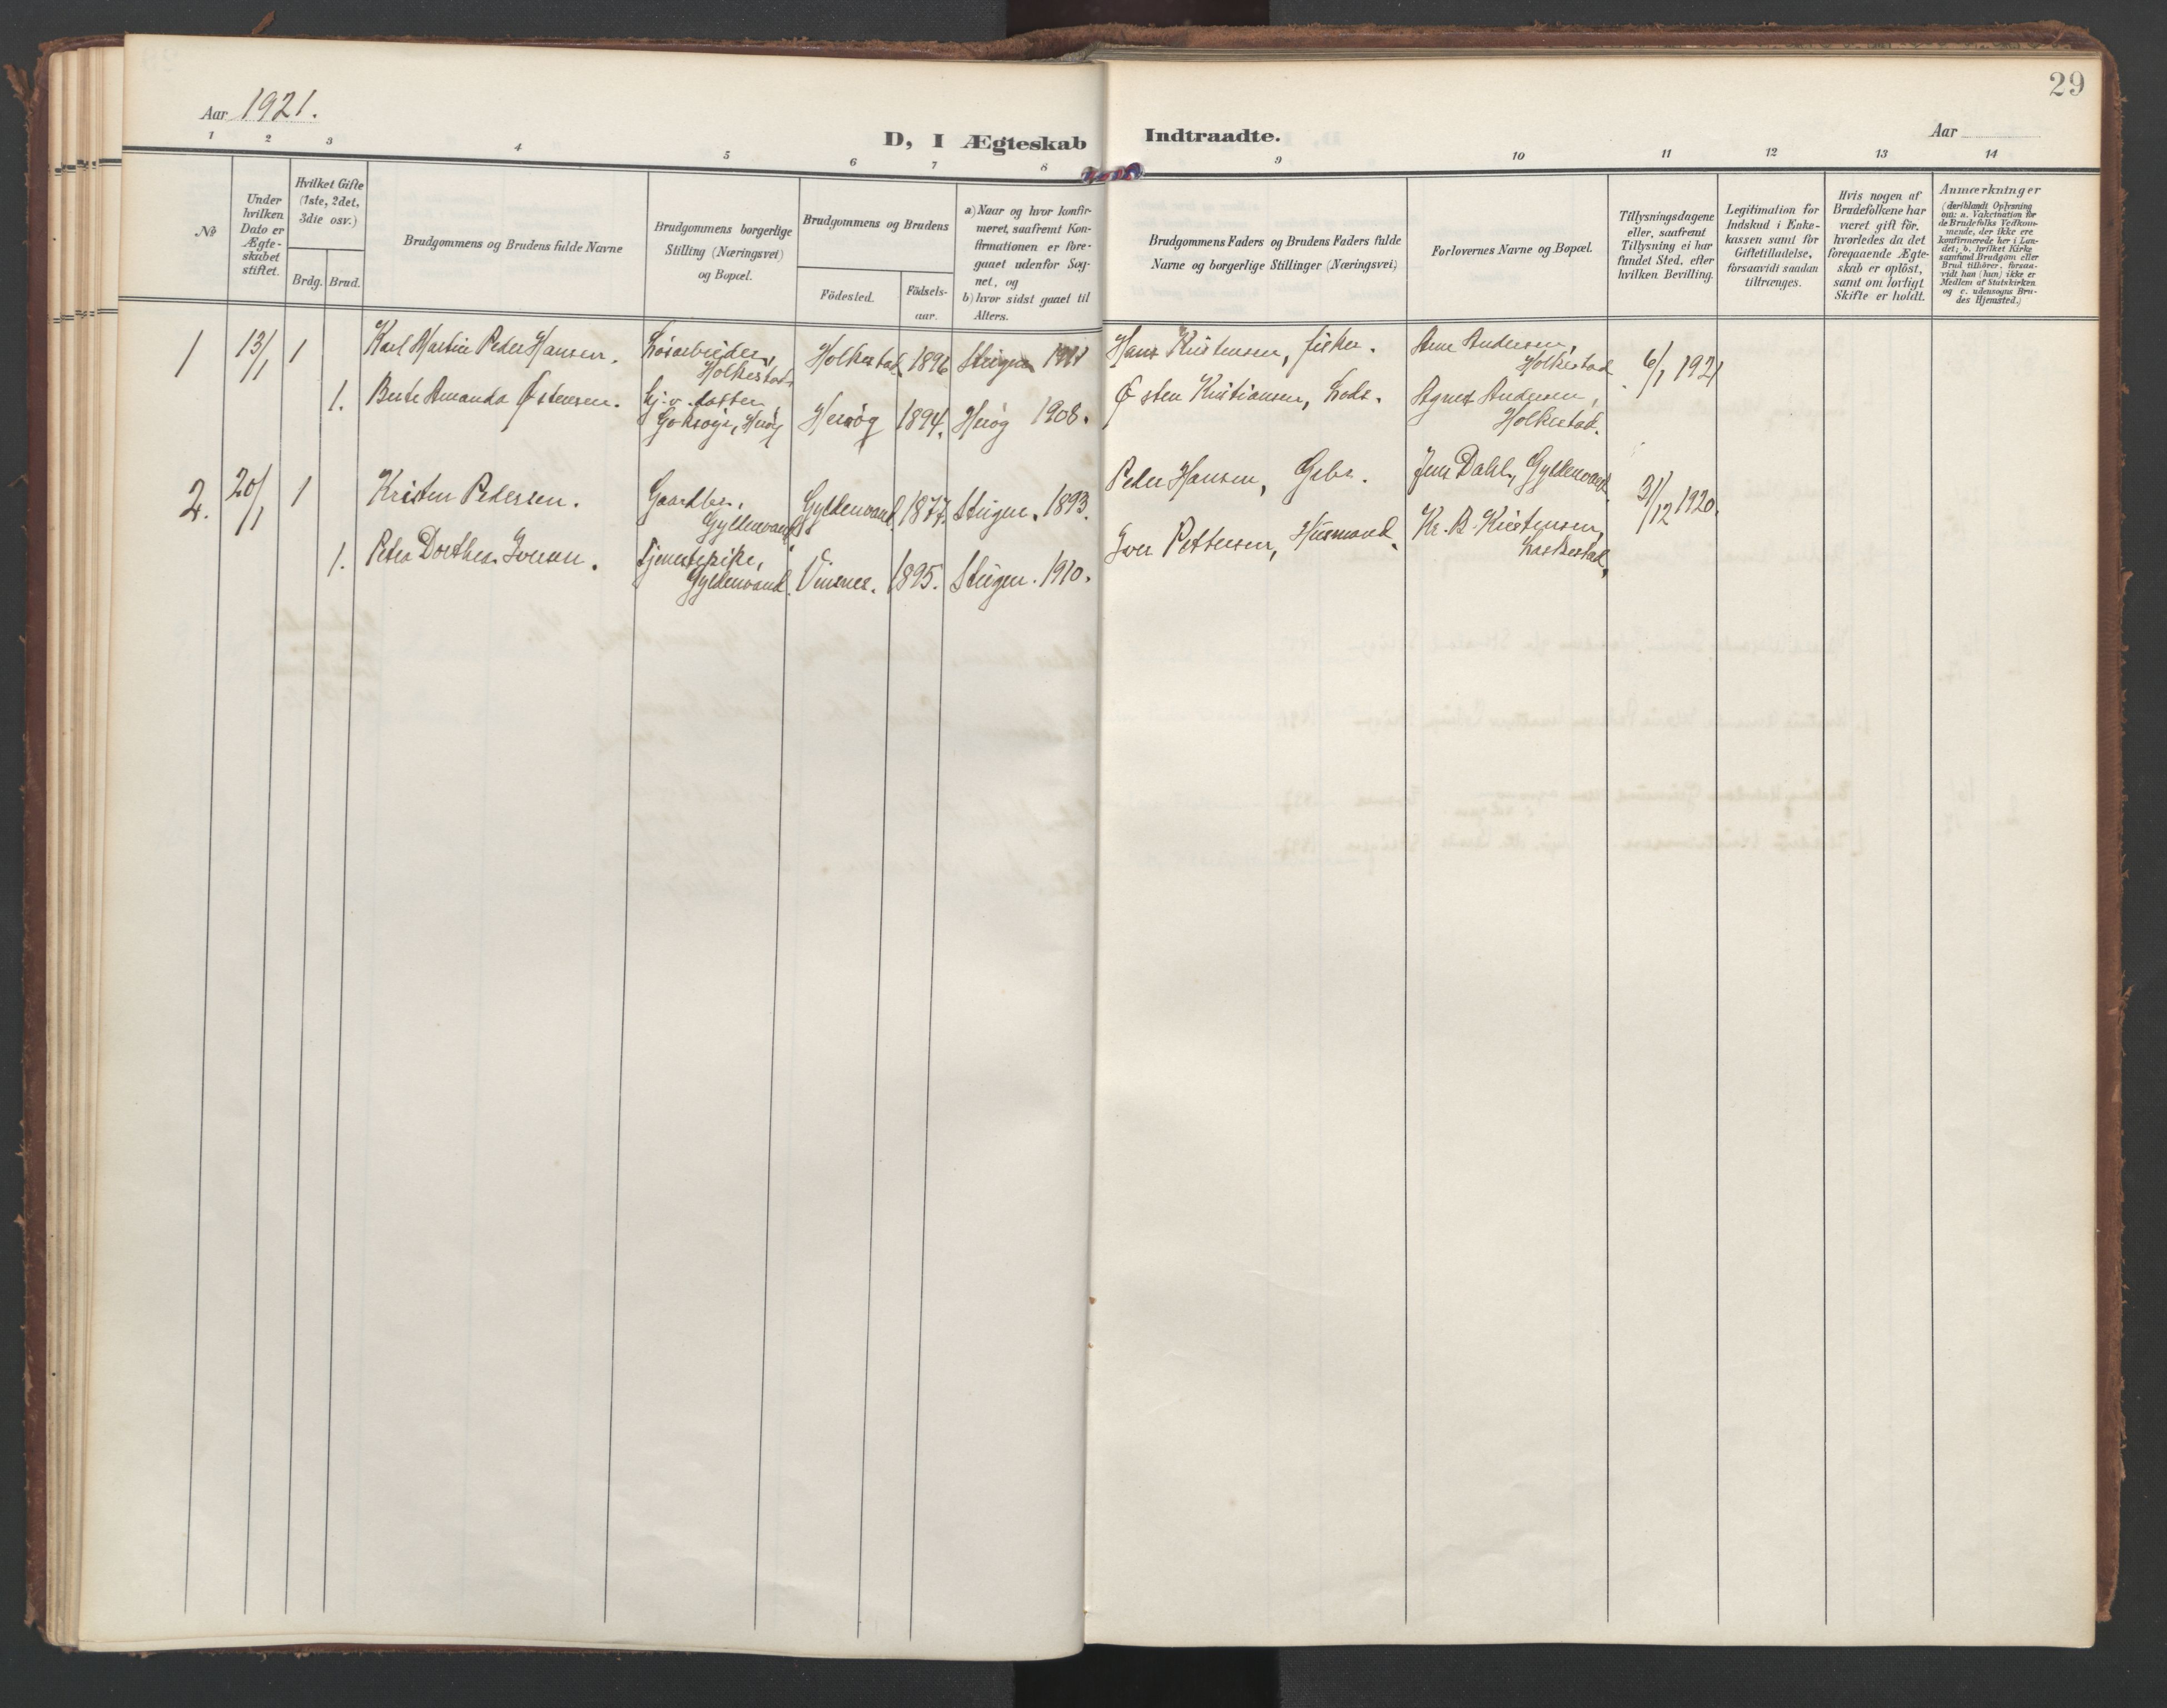 29
Aar 1921.
D, I Ægteskab Indtraadte.
Aar
1 2 3 4 5 6 7 8 9 10 11 12 13 14
№
Under
hvilken
Dato er
Ægte-
skabet
stiftet.
Hvilket Gifte
(1ste, 2det,
3die osv.)
Brdg. Brud.
Brudgommens og Brudens fulde Navne
Brudgommens borgerlige
Stilling (Næringsvei)
og Bopæl.
Brudgommens og Brudens
Födested.
Födsels-
aar.
a) Naar og hvor konfir-
meret, saafremt Kon-
firmationen er fore-
gaaet udenfor Sog-
net, og
b) hvor sidst gaaet til
Alters.
Brudgommens Faders og Brudens Faders fulde
Navne og borgerlige Stillinger (Næringsvei)
Forlovernes Navne og Bopæl.
Tillysningsdagene
eller, saafremt
Tillysning ei har
fundet Sted, efter
hvilken Bevilling.
Legitimation for
Indskud i Enke-
kassen samt for
Giftetilladelse,
forsaavidt saadan
tiltrænges.
Hvis nogen af
Brudefolkene har
været gift för,
hvorledes da det
foregaaende Ægte-
skab er oplöst,
samt om lovligt
Skifte er holdt.
Anmærkninger
(deriblandt Oplysning
om: a. Vakcination for
de Brudefolks Vedkom-
mende, der ikke ere
konfirmerede her i Lan-
det; b. hvilket Kirke
samfund Brudgom eller
Brud tilhörer, forsaa-
vidt han (hun) ikke er
Medlem af Statskirken
og c. udensogns Bru-
des Hjemsted.)
1 13/1 1 Karl Martin Peder Hansen. Løsarbeider, Holkestad 1896 Steigen 1911 Hans Kristensen, fisker. Arne Andersen, 6/1 1921
Holkestad Holkestad
1. Berte Amanda Østensen. hj.v. datter Herøy 1894. Herøy 1908. Østen Kristiansen, Lods. Agnes Andersen,
Herøy Holkestad.
2. 20/1 1 Kristen Pedersen. Gaardbr., Gyldenvand 1877. Steigen. 1893. Peder Hansen, Gsbr. Jens Dahl, Gyldenvand. 31/12 1920.
Gyldenvand
1. Petra Dorthea Iversen. Tjenestepike, Vinsnes. 1895. Steigen. 1910. Iver Pettersen, Husmand. Kr. B. Kristensen,
Gyldenvand. Laskestad.